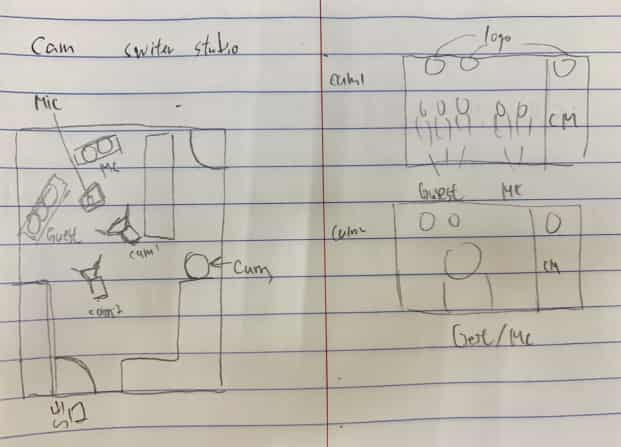 Cam switer studio
Mic
MC
Guest
cam1
cam2
Cam
logo
cam1
CM
Guest MC
Cam2
CM
Gest/MC